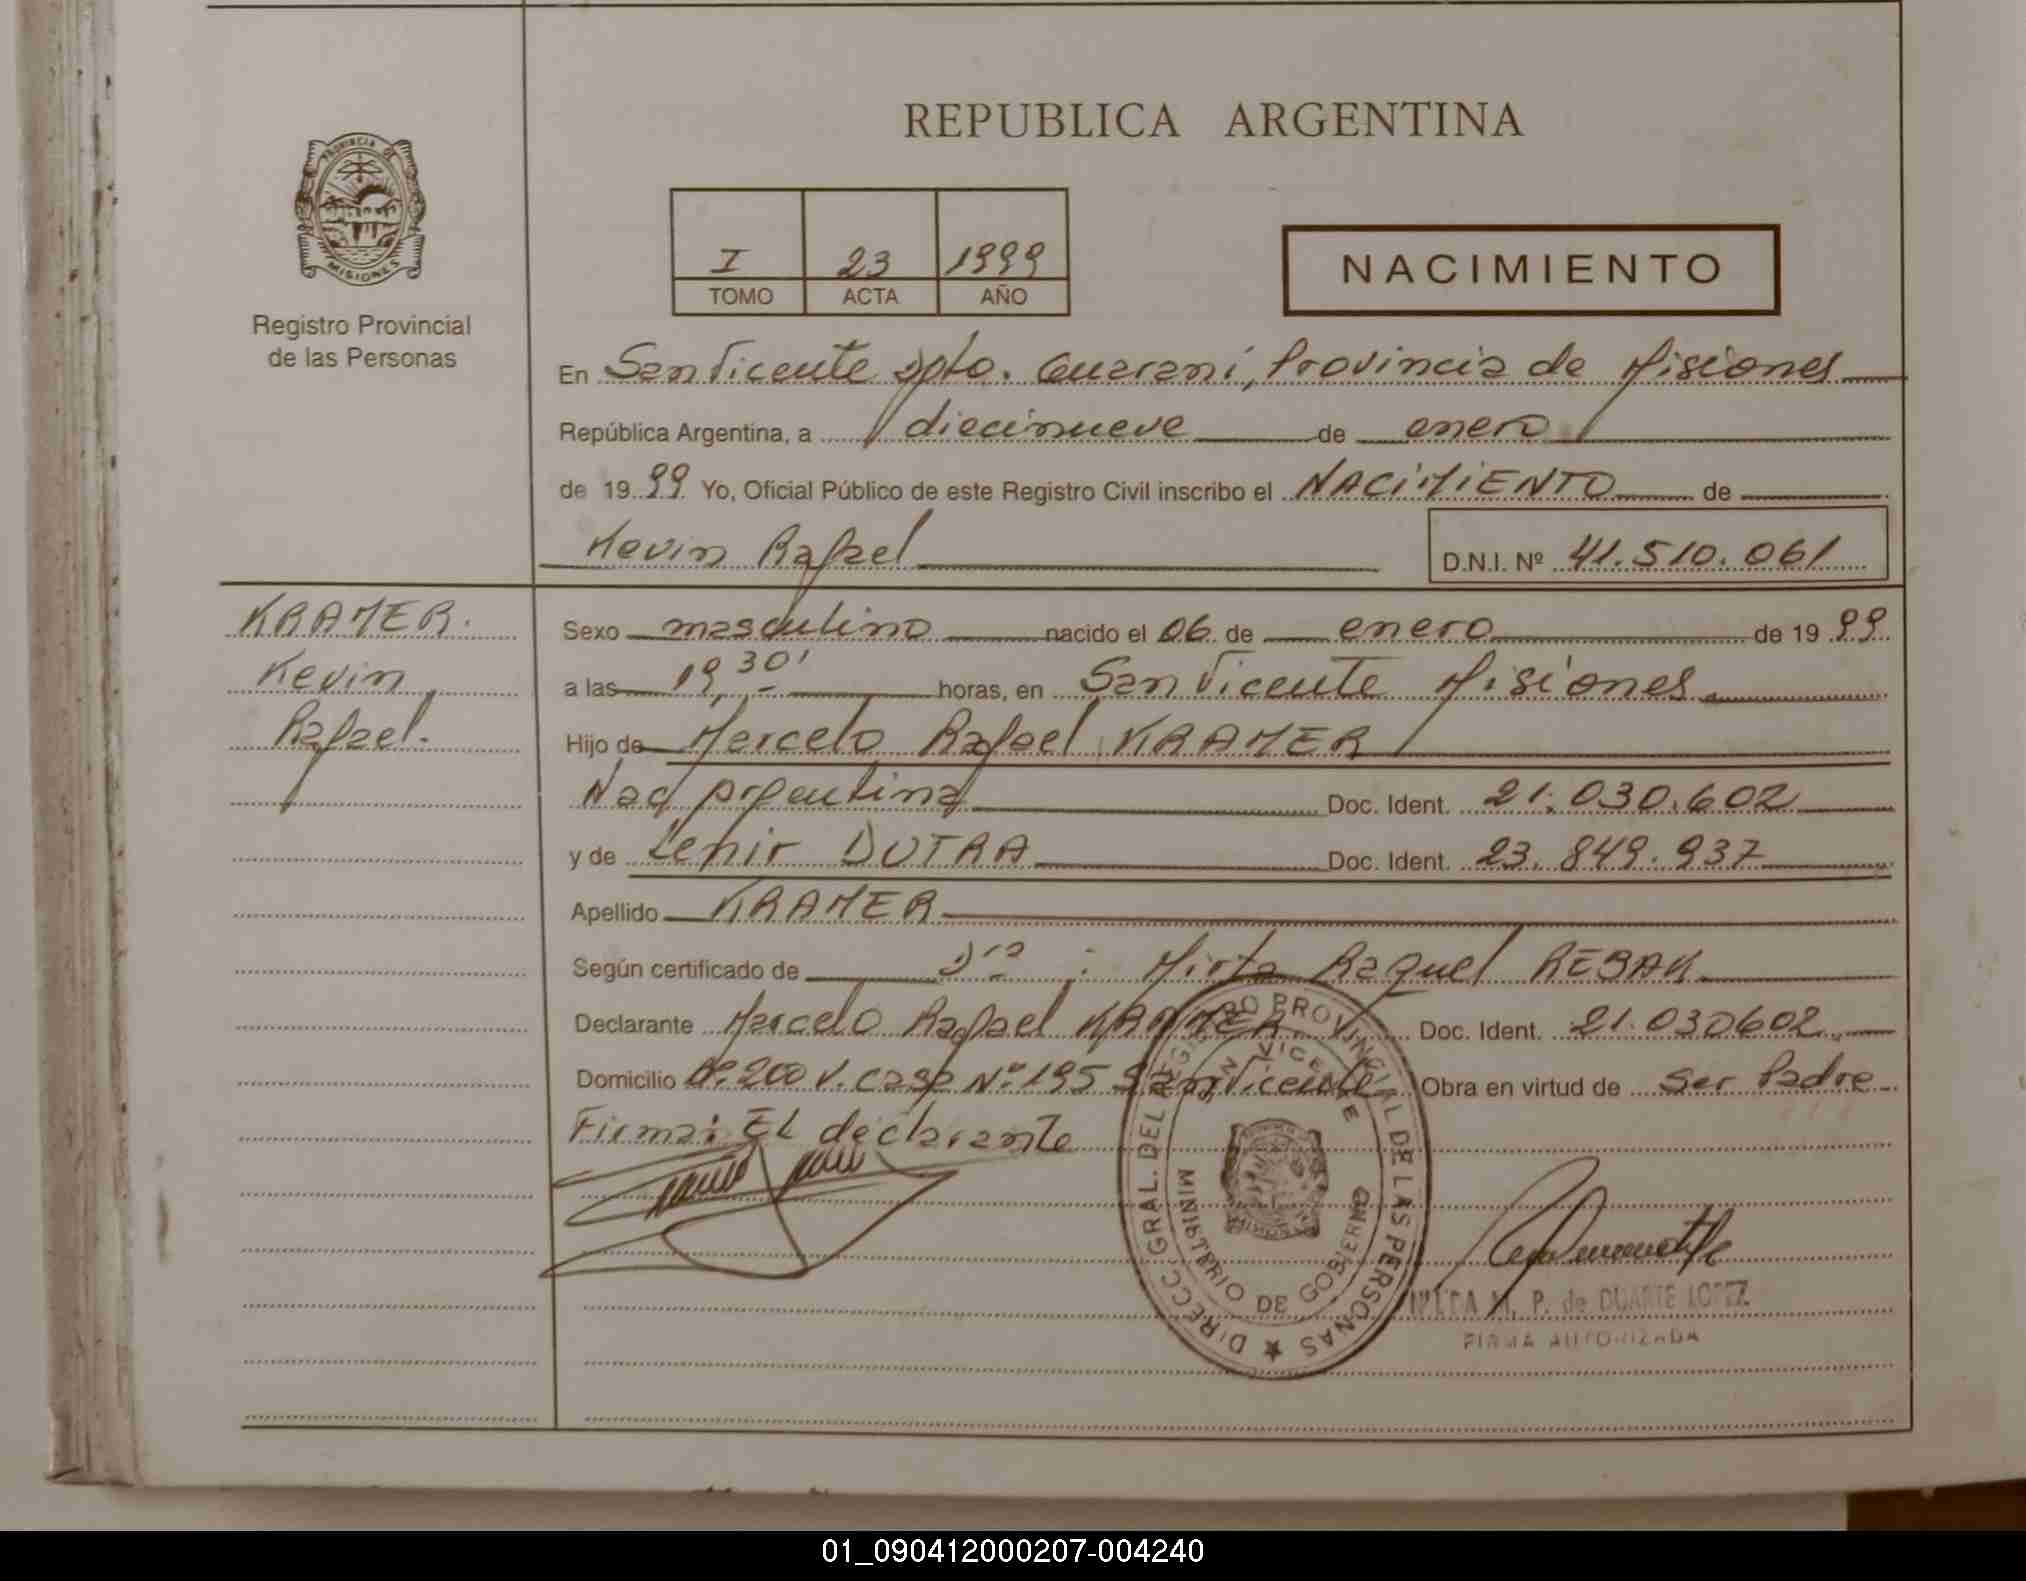 REPUBLICA ARGENTINA
PROVINCIA DE
MISIONES
Registro Provincial
de las Personas
I 23 1999
TOMO ACTA AÑO
NACIMIENTO
En San Vicente Dpto. Guaraní, Provincia de Misiones
República Argentina, a diecinueve de enero
de 1999 Yo, Oficial Público de este Registro Civil inscribo el NACIMIENTO de
Kevin Rafael D.N.I. Nº 41.510.061
KRAMER.
Kevin
Rafael.
Sexo masculino nacido el 06 de enero de 1999
a las 19,30' horas, en San Vicente Misiones
Hijo de Marcelo Rafael KRAMER
Nac argentina Doc. Ident. 21.030.602
y de Lenir DUTRA Doc. Ident. 23.849.937
Apellido KRAMER
Según certificado de Dra : Mirta Raquel REBAK
Declarante Marcelo Rafael KRAMER Doc. Ident. 21.030602
Domicilio Bº.200 V. casa Nº 195 San Vicente Obra en virtud de ser Padre
Firma: EL declarante
DIRECC. GRAL. DEL REGISTRO PROVINCIAL DE LAS PERSONAS
SAN VICENTE
MINISTERIO DE GOBIERNO
M. P. de DUARTE LOPEZ
FIRMA AUTORIZADA
01_090412000207-004240